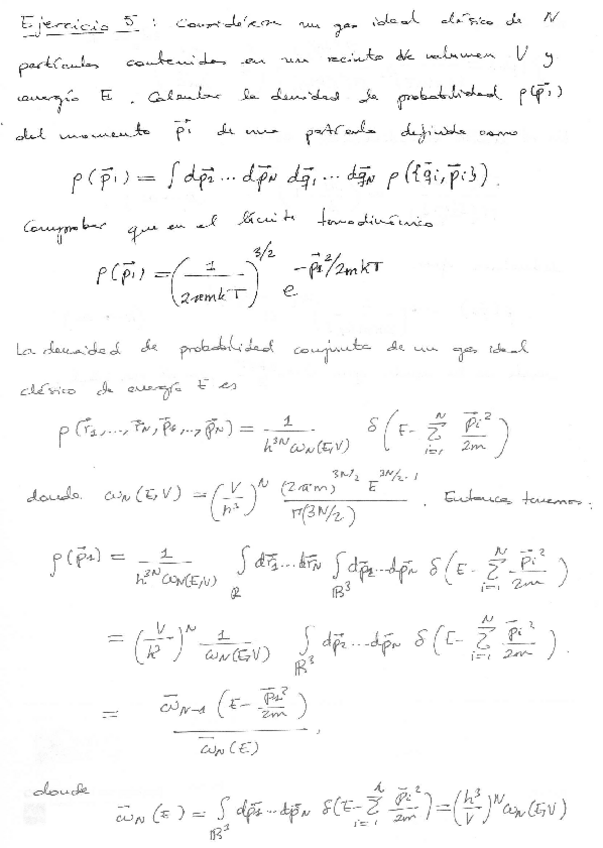 Ejercicio 5 : Considérese un gas ideal clásico de N
partículas contenidas en un recinto de volumen V y
energía E. Calcular la densidad de probabilidad ρ(p⃗₁)
del momento p⃗₁ de una partícula definida como
ρ(p⃗₁) = ∫ dp⃗₂ ... dp⃗_N dq⃗₁ ... dq⃗_N ρ({q⃗i, p⃗i}).
Comprobar que en el límite termodinámico
ρ(p⃗₁) = (1/2πmkT)^{3/2} e^{-p⃗₁²/2mkT}
La densidad de probabilidad conjunta de un gas ideal
clásico de energía E es
ρ(r⃗₁,..., r⃗_N, p⃗₁,..., p⃗_N) = 1/(h^{3N} ω_N(E,V)) δ(E - Σ_{i=1}^{N} p⃗i²/2m)
donde ω_N(E,V) = (V/h³)^N (2πm)^{3N/2} E^{3N/2-1}/Γ(3N/2). Entonces tenemos:
ρ(p⃗₁) = 1/(h^{3N} ω_N(E,V)) ∫ dr⃗₁...dr⃗_N ∫_{ℝ³} dp⃗₂...dp⃗_N δ(E - Σ_{i=1}^{N} p⃗i²/2m)
= (V/h³)^N 1/ω_N(E,V) ∫_{ℝ³} dp⃗₂...dp⃗_N δ(E - Σ_{i=1}^{N} p⃗i²/2m).
= ω̄_{N-1}(E - p⃗₁²/2m)/ω̄_N(E),
donde
ω̄_N(E) = ∫_{ℝ³} dp⃗₁...dp⃗_N δ(E - Σ_{i=1} p⃗i²/2m) = (h³/V)^N ω_N(E,V)